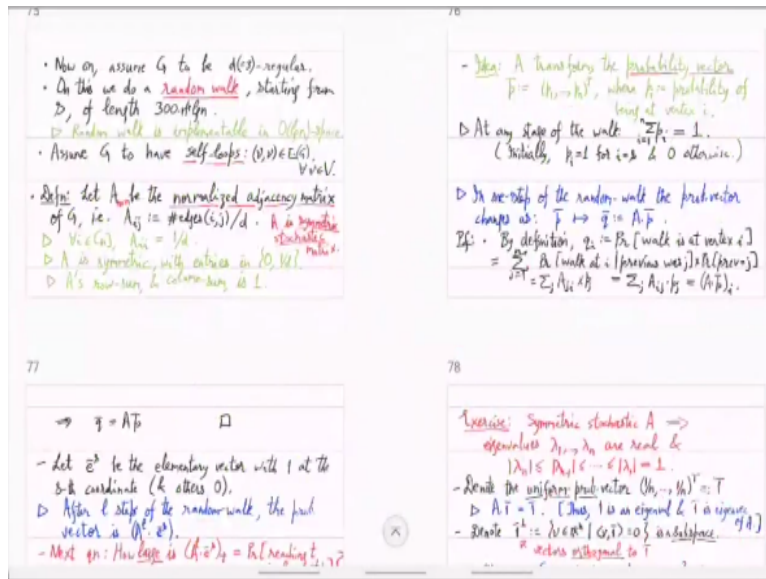 75
• Now on, assume G to be d(=3)-regular.
• On this we do a random walk, starting from
s, of length
▷ Random walk is implementable in O(lgn)-space.
• Assume G to have self-loops: (v,v)∈E(G),
∀v∈V.
• Defn: Let A be the normalized adjacency matrix
of G, i.e. Aij := #edges(i,j)/d. A is symmetric
stochastic
matrix.
▷ ∀i∈[n], Aii = 1/d.
▷ A is symmetric, with entries in {0, 1/d}.
▷ A's row-sum, & column-sum, is 1.
76
- Idea: A transforms the probability vector
p̄ := (p₁,..,pₙ)ᵀ, where pᵢ := probability of
being at vertex i.
▷ At any stage of the walk: Σpᵢ = 1.
(Initially, pᵢ=1 for i=s & 0 otherwise.)
▷ In one-step of the random-walk the prob. vector
changes as: p̄ ↦ q̄ := A·p̄.
Pf: • By definition, qᵢ := Pr[walk is at vertex i]
= Σ Pr[walk at i | previous was j] × Pr[prev=j]
= Σⱼ Aji × pj = Σⱼ Aij·pj = (A·p̄)ᵢ.
77
⇒ q̄ = Ap̄ □
- Let ēˢ be the elementary vector with 1 at the
s-th coordinate (& others 0).
▷ After l steps of the random-walk, the prob.
vector is (Aˡ·ēˢ).
- Next qn: How large is (Aˡ·ēˢ)ₜ = Pr[reading t
78
Exercise: Symmetric stochastic A ⇒
eigenvalues λ₁,..,λₙ are real &
|λₙ| ≤ |λₙ₋₁| ≤ ··· ≤ |λ₁| = 1.
- Denote the uniform prob. vector (1/n,..,1/n)ᵀ =: 1̄
▷ A·1̄ = 1̄. [Thus, 1 is an eigenval & 1̄ is eigenvec
of A]
- Denote 1̄^⊥ := {v∈ℝⁿ | ⟨v,1̄⟩=0} is a subspace.
vectors orthogonal to 1̄